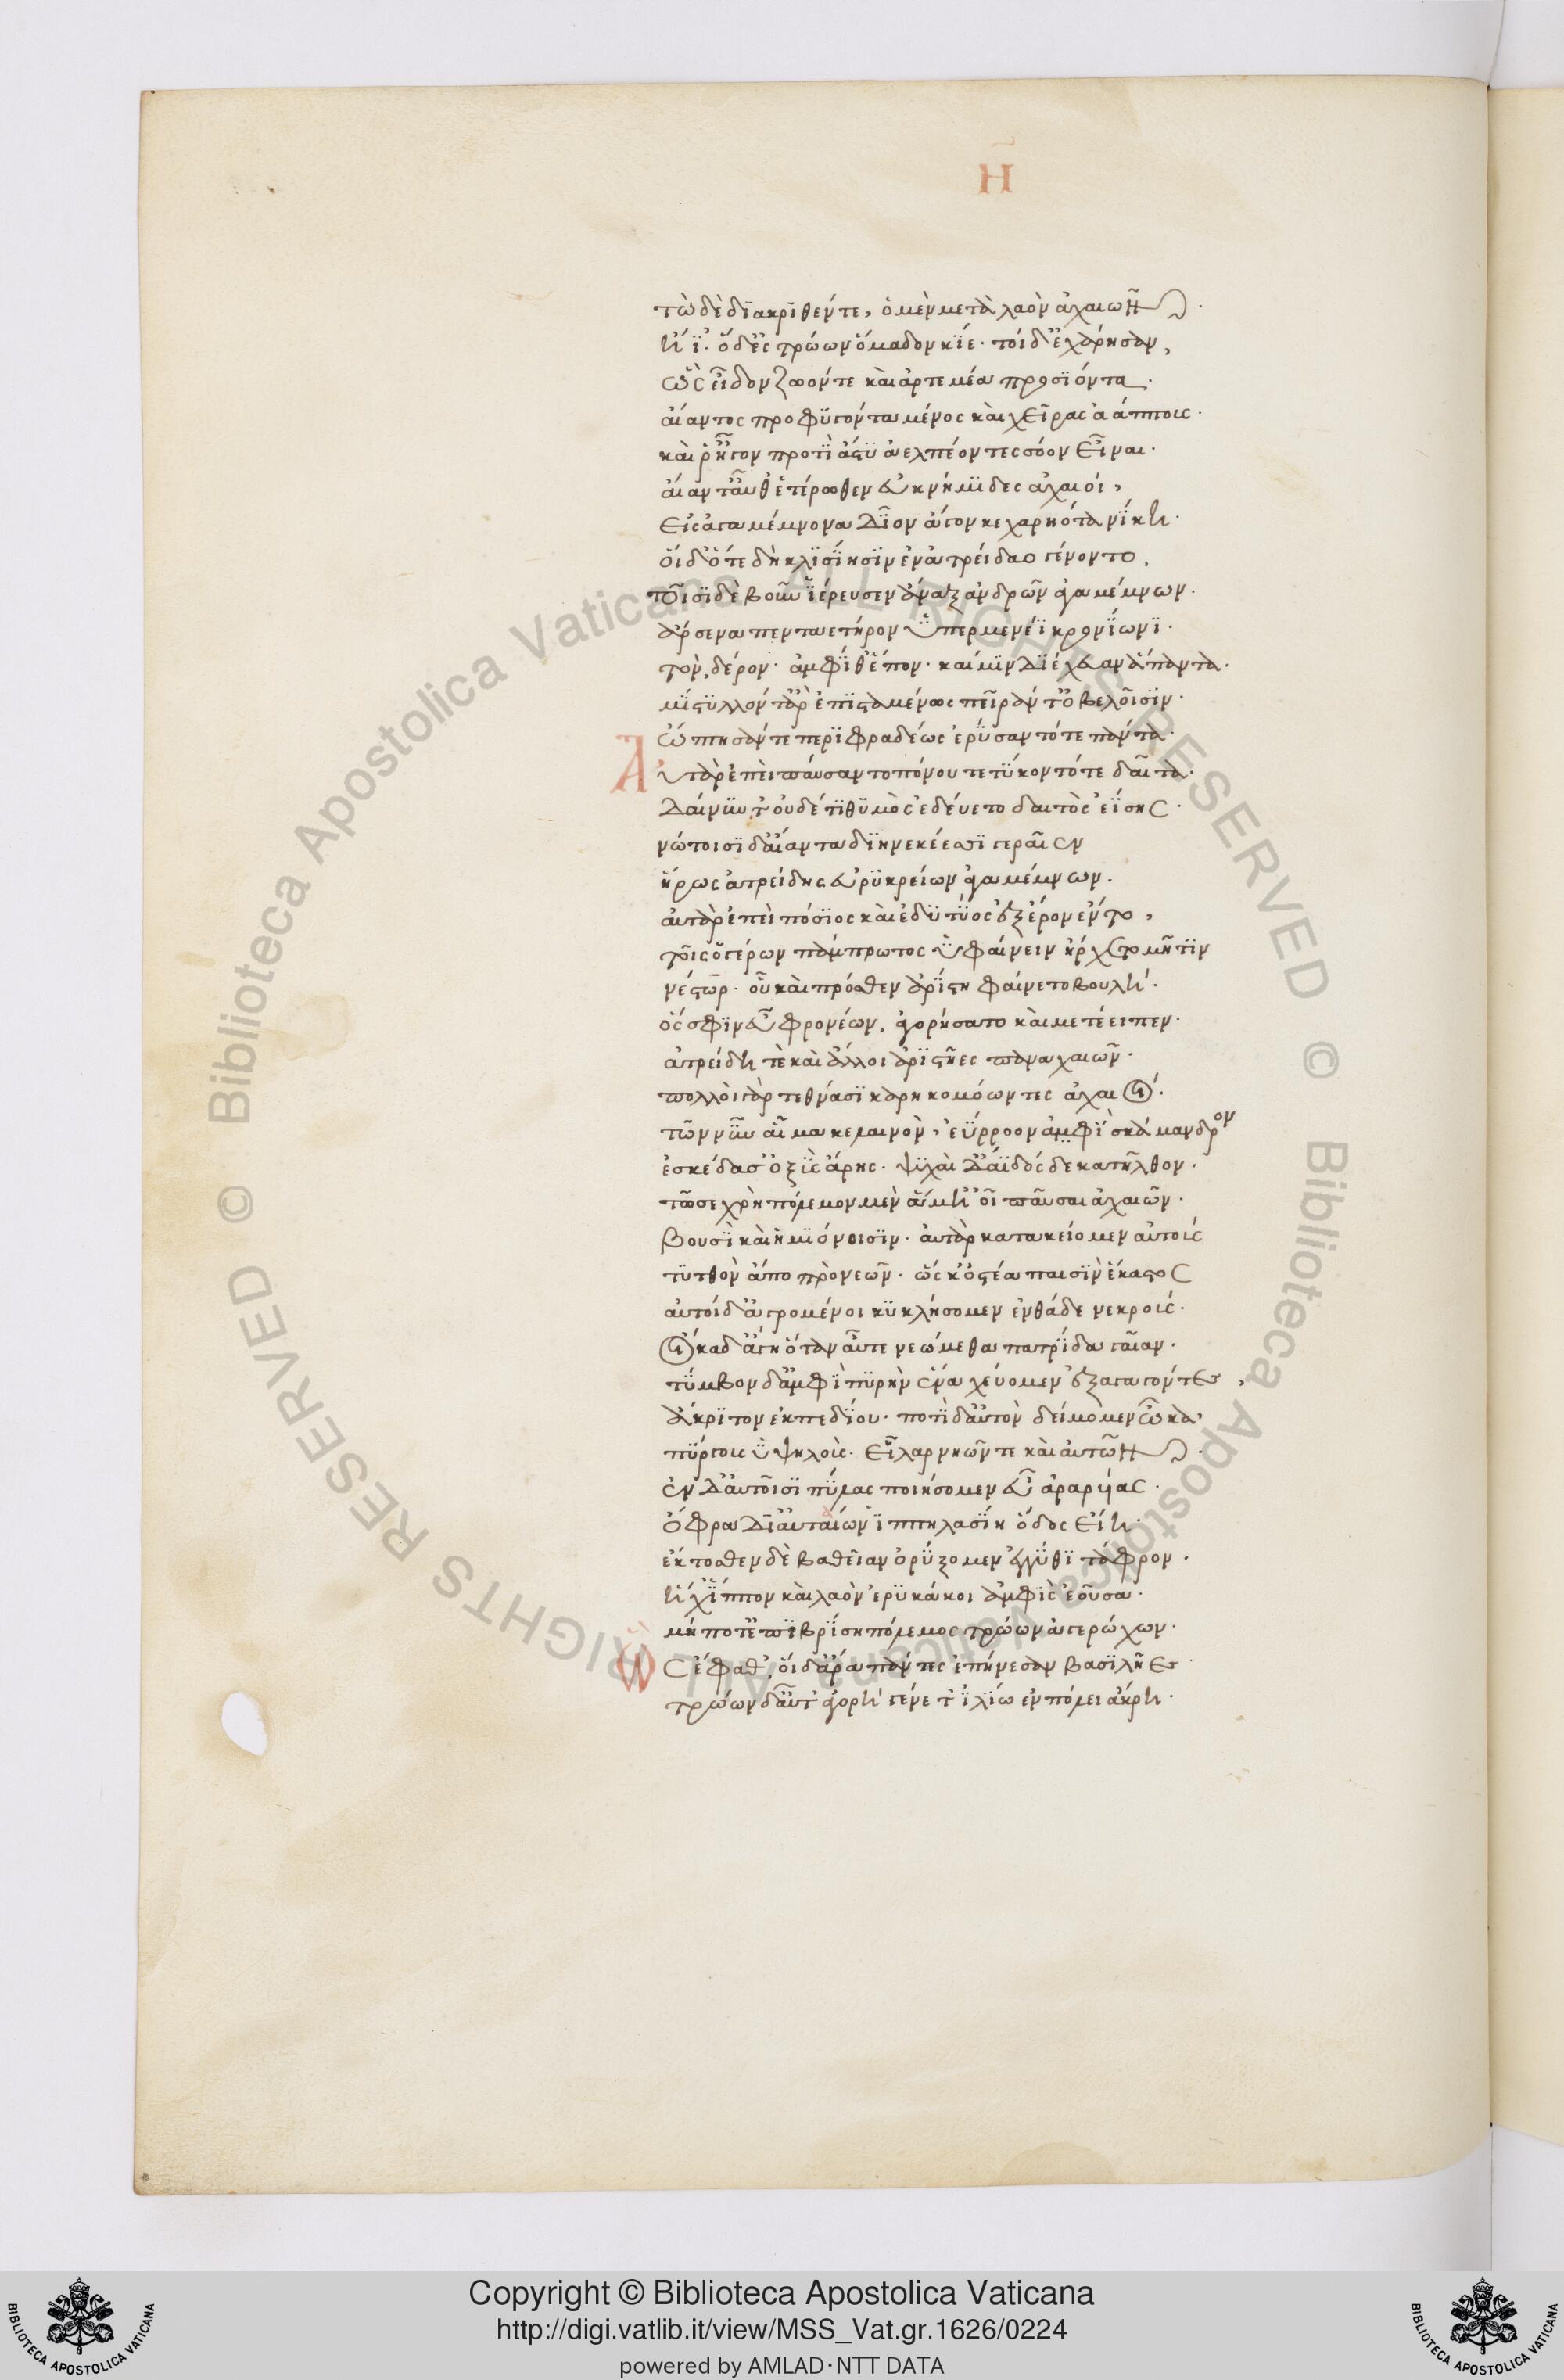 Η
τὼ δὲ διακριθέντε, ὁ μὲν μετὰ λαὸν ἀχαιῶν.
ἤϊ. ὃ δ' ἐς τρώων ὅμαδον κίε. τοὶ δ' ἐχάρησαν,
ὡς εἶδον ζωόντε καὶ ἀρτεμέα προσϊόντα.
αἴαντος προφυγόντα μένος καὶ χεῖρας ἀάπτοις.
καί ῥ' ἦγον προτὶ ἄστυ ἀελπέοντες σόον εἶναι.
αἴαντ' αὖθ' ἑτέρωθεν ἐυκνήμιδες ἀχαιοί,
εἰς ἀγαμέμνονα δῖον ἄγον κεχαρηότα νίκη.
οἱ δ' ὅτε δὴ κλισίησιν ἐν ἀτρείδαο γένοντο,
τοῖσι δὲ βοῦν ἱέρευσεν ἄναξ ἀνδρῶν ἀγαμέμνων.
ἄρσενα πενταετηρον ὑπερμενέϊ κρονίωνϊ.
τὸν, δέρον. ἀμφί θ' ἕπον. καί μιν διέχευαν ἅπαντα.
μίστυλλόν τ' ἂρ' ἐπισταμένως πεῖράν τ' ὀβελοῖσιν.
ὤπτησάν τε περιφραδέως ἐρύσαντό τε πάντα.
Αὐτὰρ ἐπεὶ παύσαντο πόνου τετύκοντό τε δαῖτα.
δαίνυντ' οὐδέ τι θυμὸς ἐδεύετο δαιτὸς ἐΐσης.
νώτοισι δ' αἴαντα διηνεκέεσσι γέραιεν
ἥρως ἀτρείδης εὐρυκρείων ἀγαμέμνων.
αὐτὰρ ἐπεὶ πόσιος καὶ ἐδητύος ἐξ ἔρον ἕντο,
τοῖς ὁ γέρων πάμπρωτος ὑφαίνειν ἤρχετο μῆτιν
νέστωρ. οὗ καὶ πρόσθεν ἀρίστη φαίνετο βουλή.
ὅς σφιν ἐϋφρονέων, ἀγορήσατο καὶ μετέειπεν.
ἀτρείδη τὲ καὶ ἄλλοι ἀριστῆες παναχαιῶν.
πολλοὶ γὰρ τεθνάσι καρηκομόωντες ἀχαιοί.
τῶν νῦν αἷμα κελαινὸν, ἐΰρροον ἀμφὶ σκάμανδρον
ἐσκέδασ' ὀξὺς ἄρης. ψυχαὶ δ' ἄϊδόςδε κατῆλθον.
τῶ σε χρὴ πόλεμον μὲν ἅμ' ἠοῖ παῦσαι ἀχαιῶν.
βουσὶ καὶ ἡμιόνοισιν. ἀτὰρ κατακείομεν αὐτοὺς
τυτθὸν ἄπο πρὸ νεῶν. ὥς κ' ὀστέα παισὶν ἕκαστος
αὐτοὶ δ' ἀγρομένοι κυκλήσομεν ἐνθάδε νεκρούς.
οἴκαδ' ἄγη ὅταν αὖτε νεώμεθα πατρίδα γαῖαν.
τύμβον δ' ἀμφὶ πυρὴν ἕνα χεύομεν ἐξαγαγόντες,
ἄκριτον ἐκ πεδίου. ποτὶ δ' αὐτὸν δείμομεν ὦκα
πύργοις ὑψηλοὺς. εἶλαρ νηῶν τε καὶ αὐτῶν.
ἐν δ' αὐτοῖσι πύλας ποιήσομεν εὖ ἀραρυίας.
ὄφρα δι' αὐτάων ἱππηλασίη ὁδὸς εἴη.
ἔκτοσθεν δὲ βαθεῖαν ὀρύξομεν ἐγγύθι τάφρον.
ἥ χ' ἵππον καὶ λαὸν ἐρυκάκοι ἀμφὶς ἐοῦσα.
μή ποτ' ἐπιβρίση πόλεμος τρώων ἀγερώχων.
Ὣς ἔφαθ', οἱ δ' ἄρα πάντες ἐπήνεσαν βασιλῆες.
τρώων δ' αὖτ' ἀγορὴ γένετ' ἰλίω ἐν πόλει ἄκρη.
Copyright © Biblioteca Apostolica Vaticana
http://digi.vatlib.it/view/MSS_Vat.gr.1626/0224
powered by AMLAD·NTT DATA
BIBLIOTECA APOSTOLICA VATICANA
BIBLIOTECA APOSTOLICA VATICANA
© Biblioteca Apostolica Vaticana ALL RIGHTS RESERVED
© Biblioteca Apostolica Vaticana ALL RIGHTS RESERVED